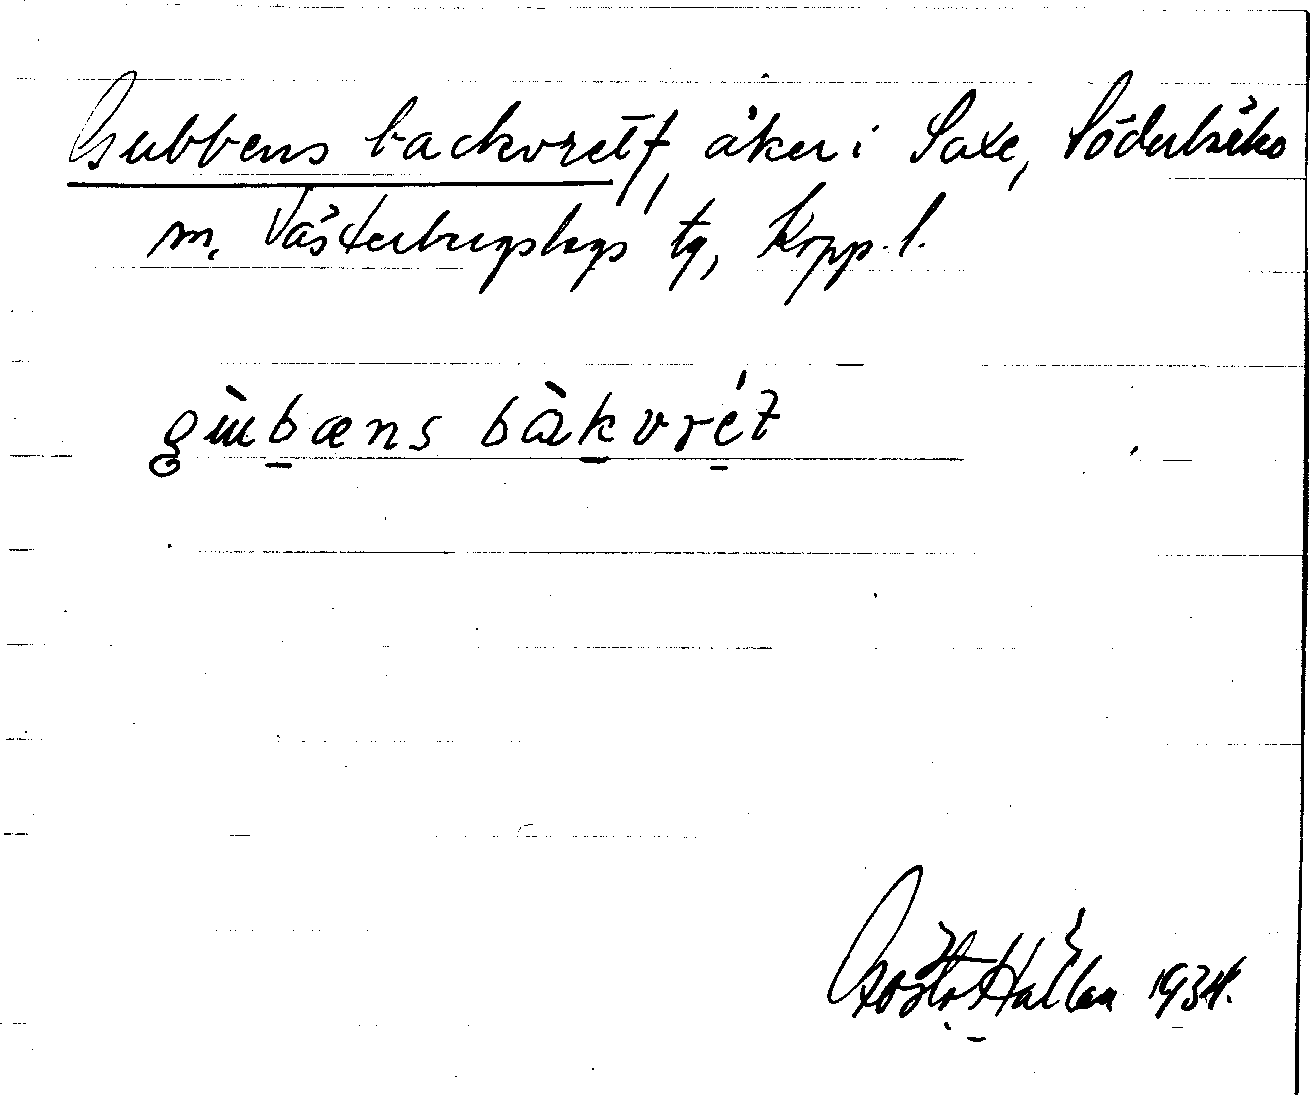 Gubbens backvret, åker i Saxe, Söderbärke
m. Västerbergslags tg, Kopp. l.
gubæns bakvret
Gösta Hallan 1934.